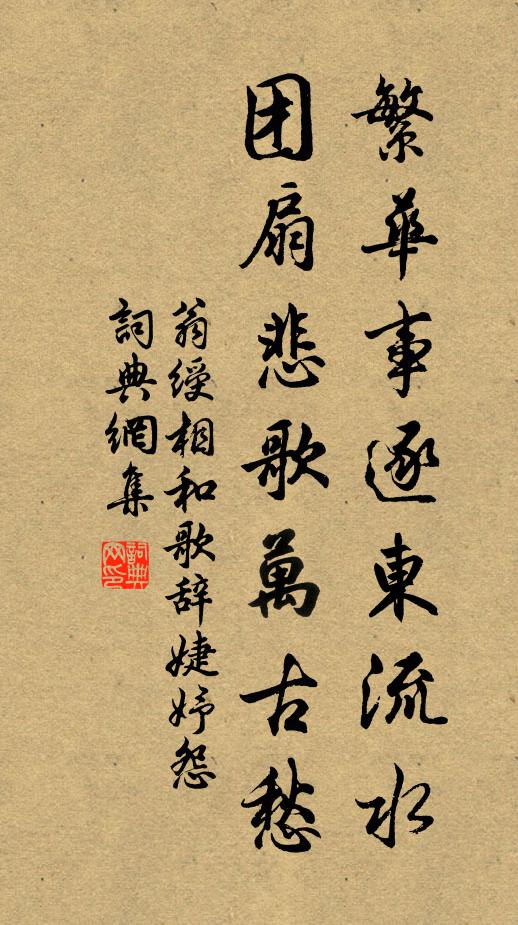 繁華事逐東流水
团扇悲歌萬古愁
翁綬相和歌辞婕妤怨
詞典網集
詞典网印